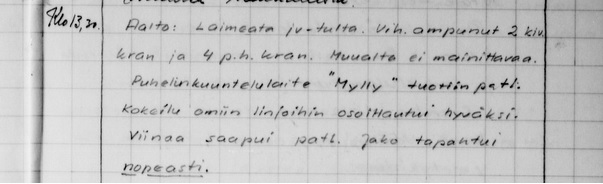 Klo 13,20.
Aalto: Laimeata jv-tulta. Vih. ampunut 2 kiv.
kran ja 4 p.h. kran. Muualta ei mainittavaa.
Puhelinkuuntelulaite "Mylly" tuotiin patl.
Kokeilu omiin linjoihin osoittautui hyväksi.
Viinaa saapui patl. Jako tapahtui
nopeasti.